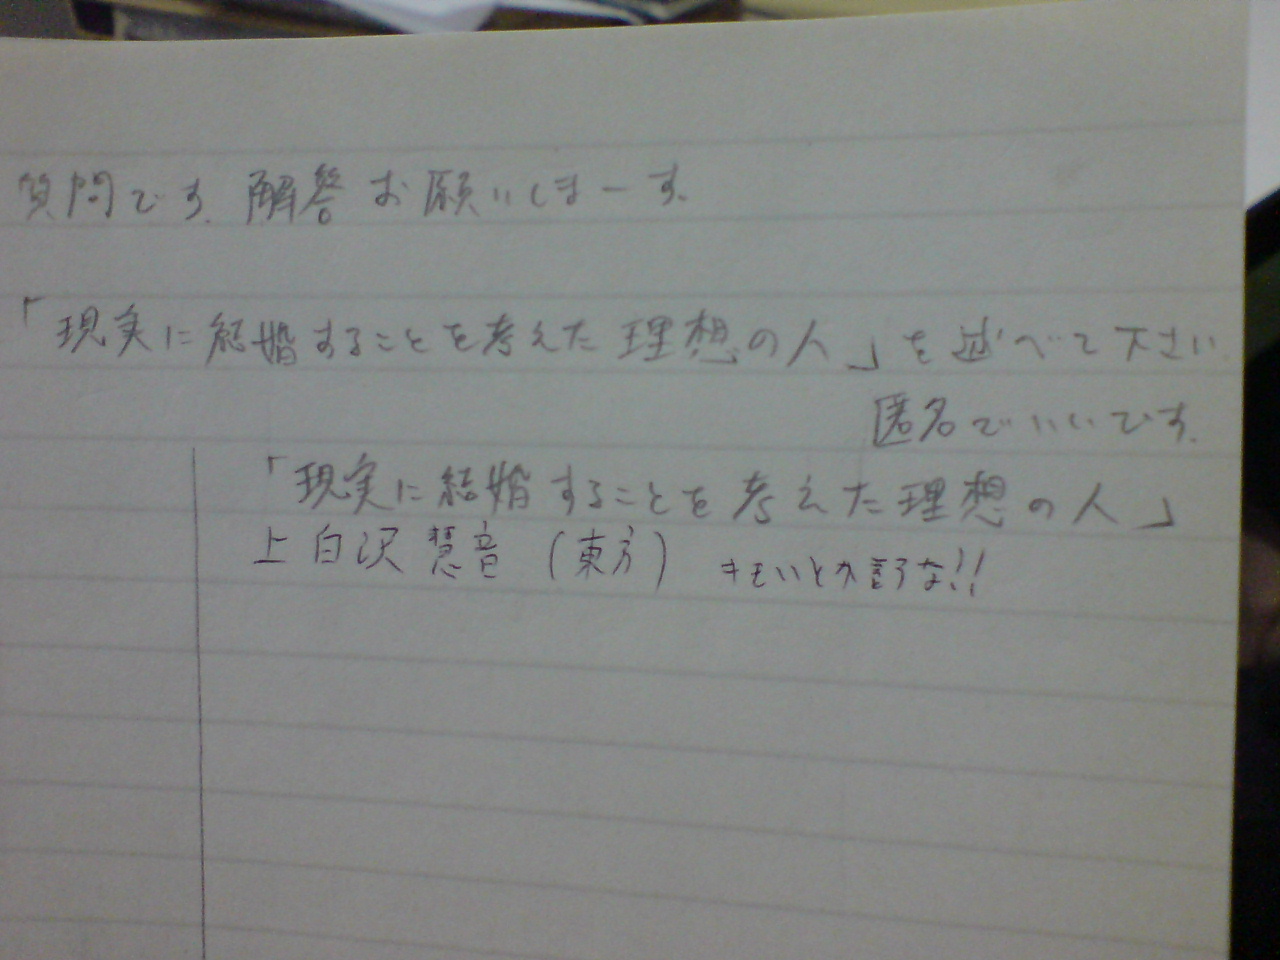 質問です. 解答お願いしまーす.
「現実に結婚することを考えた理想の人」を述べて下さい.
匿名でいいです.
「現実に結婚することを考えた理想の人」
上白沢慧音(東方) キモいとか言うな!!